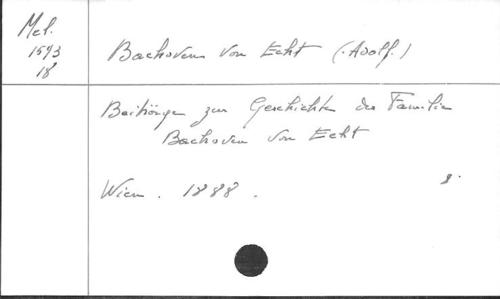 Mel.
1593
18
Bachoven von Echt (Adolf.)
Beiträge zur Geschichte der Familie
Bachoven von Echt
Wien. 1888.
8.